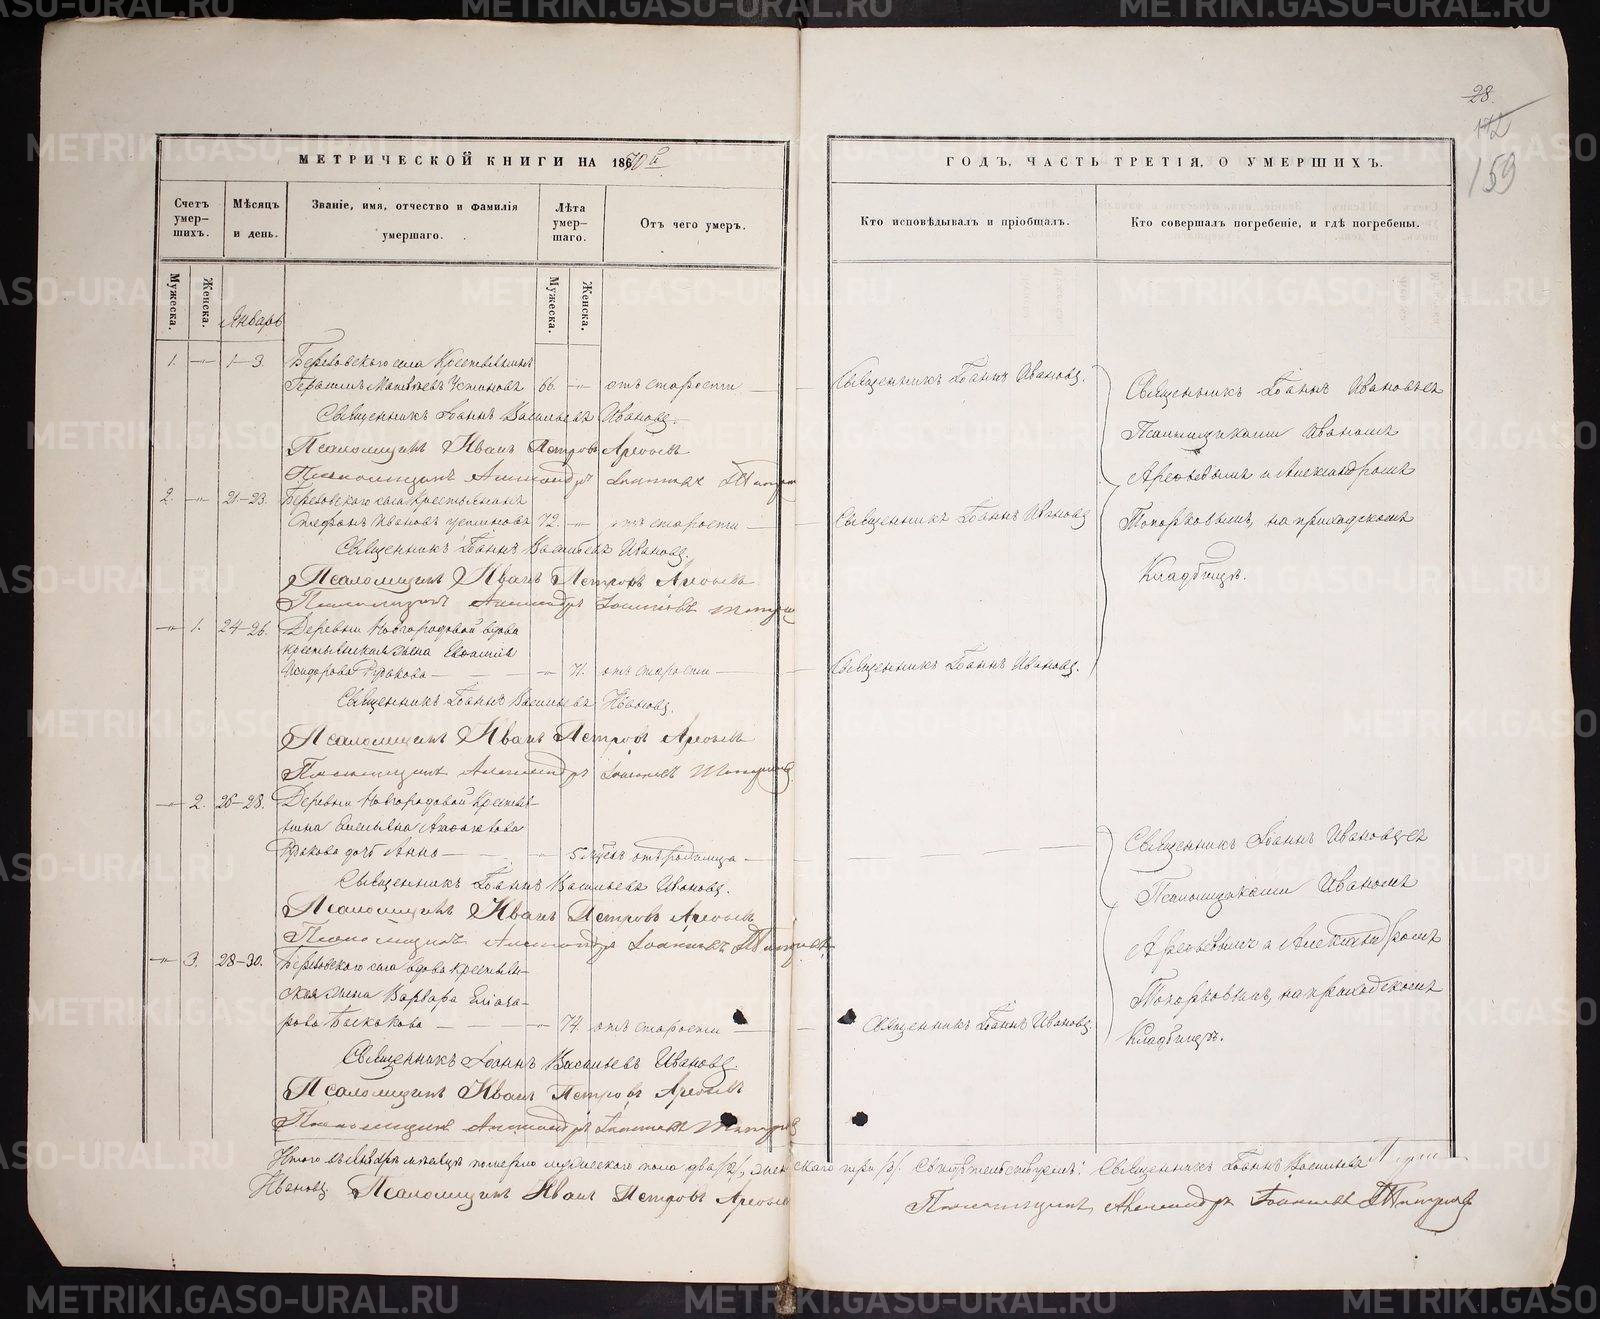 28.
142
159
МЕТРИЧЕСКОЙ КНИГИ НА 1870й
ГОДЪ, ЧАСТЬ ТРЕТІЯ, О УМЕРШИХЪ.
Счетъ умер-шихъ.
Мѣсяцъ и день.
Званіе, имя, отчество и фамилія умершаго.
Лѣта умер-шаго.
Отъ чего умеръ.
Кто исповѣдывалъ и пріобщалъ.
Кто совершалъ погребеніе, и гдѣ погребены.
Мужеска.
Женска.
Январь
Мужеска.
Женска.
1. —"— 1–3. Березовского села Крестьянинъ
Герасимъ Матвѣевъ Устиновъ 66. —"— отъ старости
Священникъ Іоаннъ Ивановъ.
Священникъ Іоаннъ Васильевъ Ивановъ.
Псаломщикъ Иванъ Петровъ Арефьевъ
Псаломщикъ Александръ Іоанновъ
2. —"— 21–23. Березовского села Крестьянинъ
Стефанъ Ивановъ Устиновъ 72. —"— отъ старости
Священникъ Іоаннъ Ивановъ
Священникъ Іоаннъ Васильевъ Ивановъ.
Псаломщикъ Иванъ Петровъ Арефьевъ
Псаломщикъ Александръ Іоанновъ
Священникъ Іоаннъ Ивановъ съ
Псаломщиками Иваномъ
Арефьевымъ и Александромъ
Топорковымъ, на приходскомъ
Кладбищѣ.
—"— 1. 24–26. Деревни Новгородовой вдова
крестьянская жена
Исидорова Русакова —"— 71. отъ старости
Священникъ Іоаннъ Ивановъ.
Священникъ Іоаннъ Васильевъ Ивановъ.
Псаломщикъ Иванъ Петровъ Арефьевъ
Псаломщикъ Александръ Іоанновъ
—"— 2. 26–28. Деревни Новгородовой Крестья-
нина
Русакова дочь Анна —"— 5 отъ родимца
Священникъ Іоаннъ Васильевъ Ивановъ.
Псаломщикъ Иванъ Петровъ Арефьевъ
Псаломщикъ Александръ Іоанновъ
—"— 3. 28–30. Березовского села вдова крестьян-
ская жена Варвара Елиаза-
рова —"— 74. отъ старости
Священникъ Іоаннъ Ивановъ.
Священникъ Іоаннъ Васильевъ Ивановъ.
Псаломщикъ Иванъ Петровъ Арефьевъ
Псаломщикъ Александръ Іоанновъ
Священникъ Іоаннъ Ивановъ съ
Псаломщиками Иваномъ
Арефьевымъ и Александромъ
Топорковымъ, на приходскомъ
Кладбищѣ.
Итого въ Январѣ мѣсяцѣ померло мужеского пола два /2/, женского три /3/. Свидѣтельствуемъ: Священникъ Іоаннъ Васильевъ
Ивановъ Псаломщикъ Иванъ Петровъ Арефьевъ
Псаломщикъ Александръ Іоанновъ
METRIKI.GASO-URAL.RU